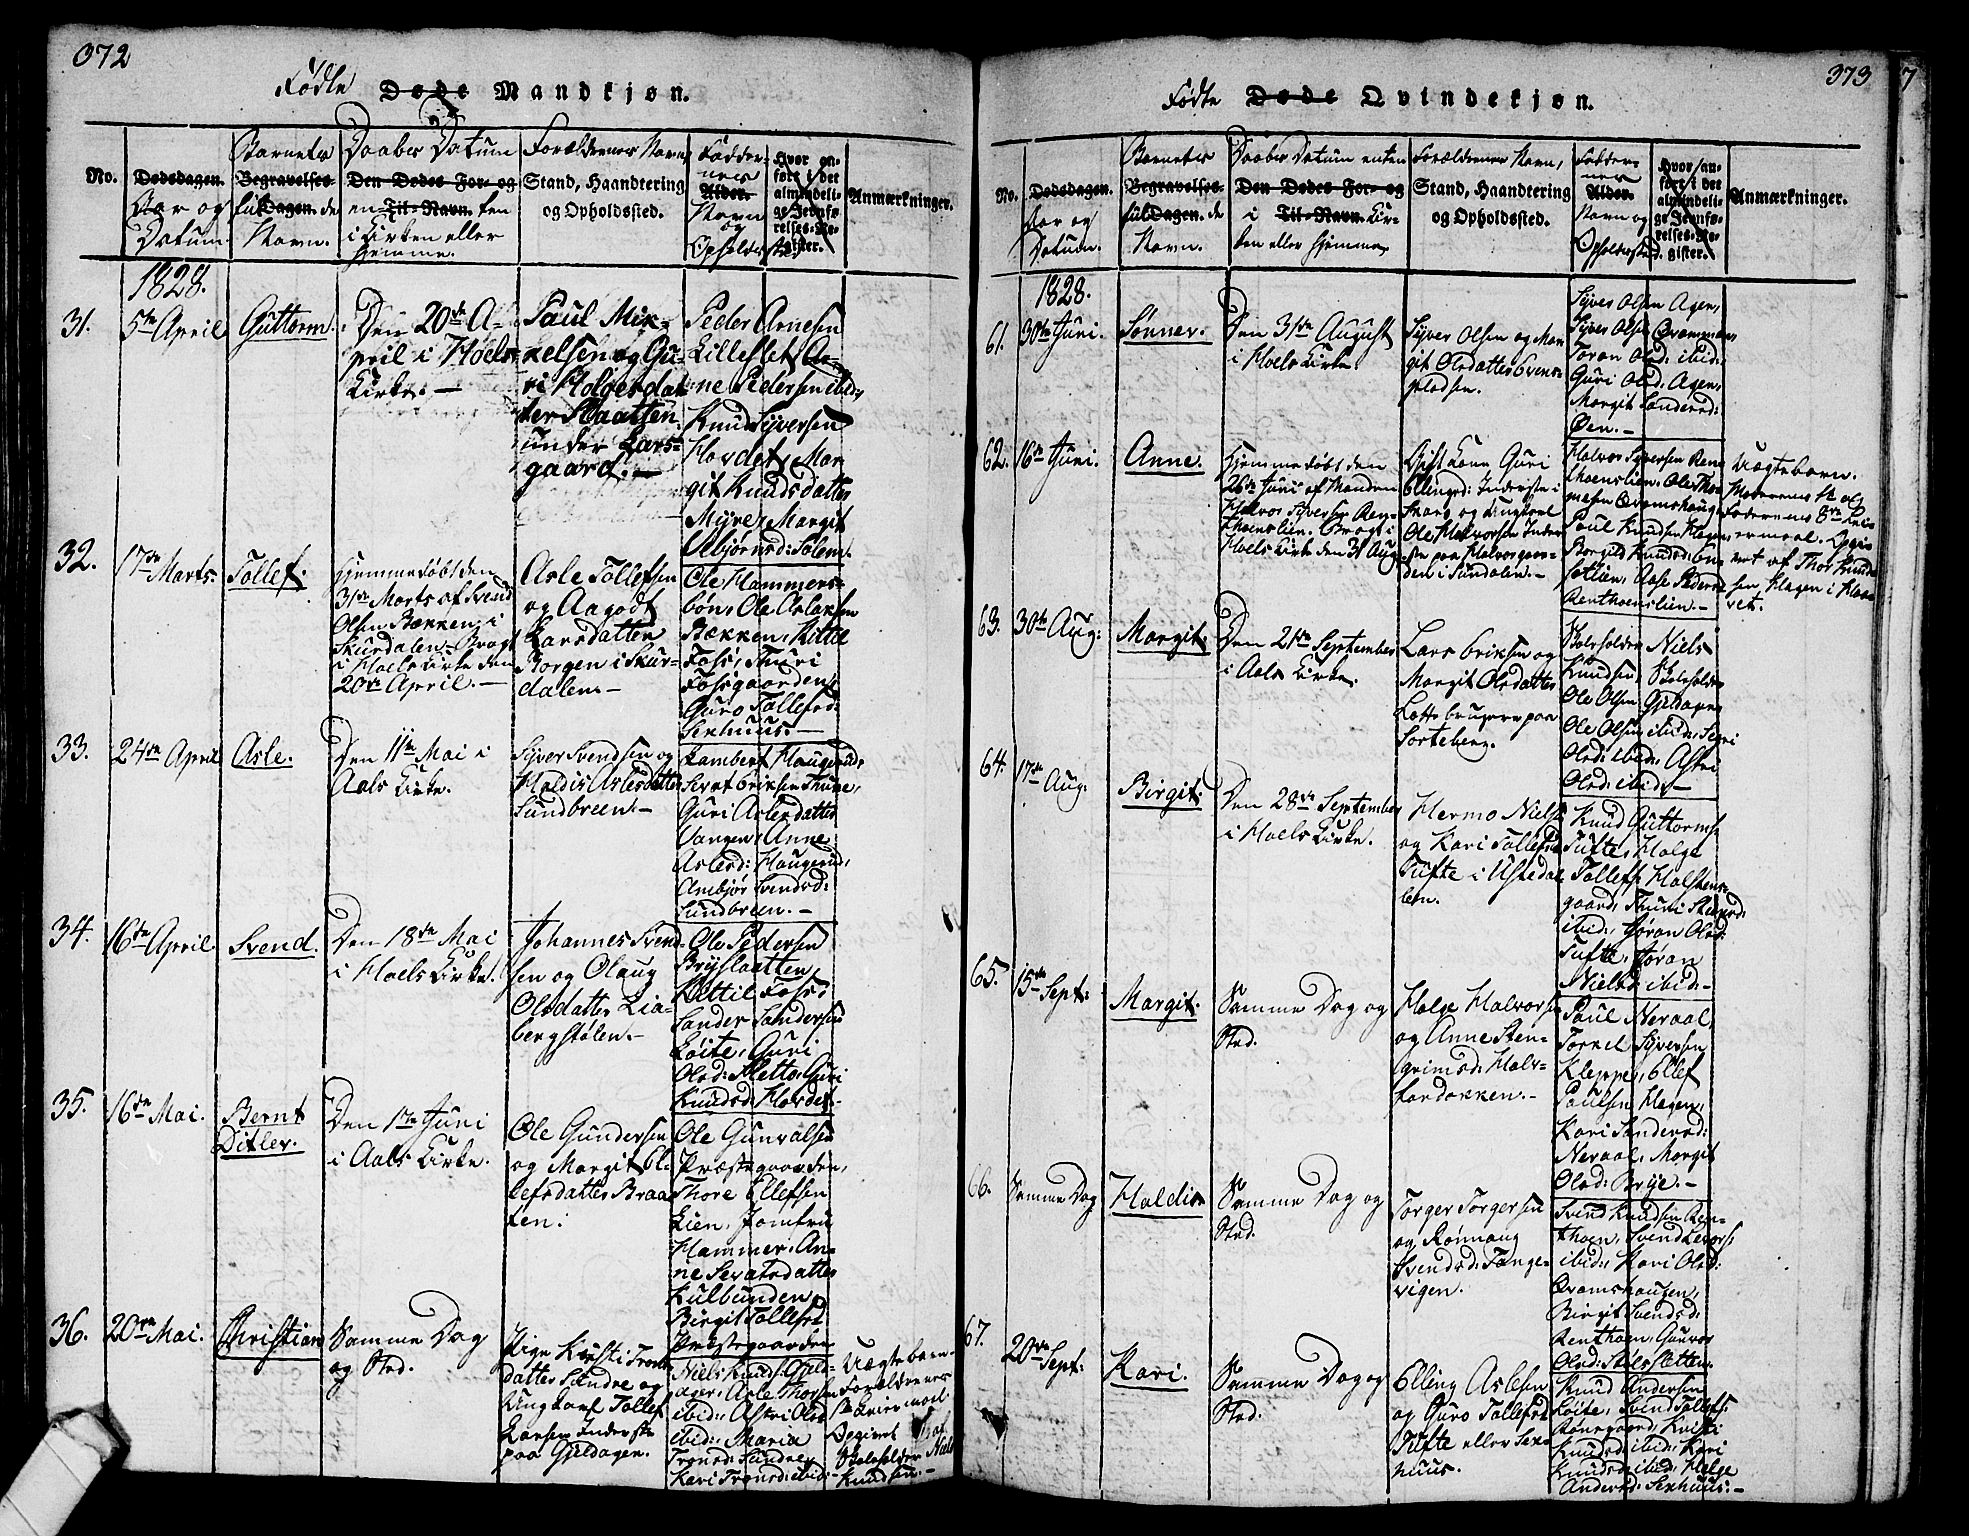 372
Fødte Døde Mandkjøn.
No.
Dødsdagen.
Aar og
Datum.
Barnets
Begravelses-
fulDagen.de
Navn.
Daabs Datum
Den Dødes For- og
en Til-Navn. ten
i Kirken eller
hjemme.
Forældrenes Navn,
Stand, Haandtering
og Opholdssted.
Fadder-
nes
Alder.
Navn
og
Opholdssted.
Hvor an-
ført i det
almindeli-
ge Jevnfø-
relses-Re-
gister.
Anmærkninger.
1828.
31.
5te April
Guttorm.
Den 20de A-
pril i Hoels
Kirke.-
Paul Mik-
kelsen og Gu-
ri Holgersdat-
ter Slaatten
under Lars-
gaard.-
Peder Arnesen
Lilleslet, Ar-
ne Pedersen ibid.,
Knud Syversen
Hordet, Mar-
git Knudsdatter
Myre, Margit
Asbjørnsd: Solem.
32.
17de Marts.
Tollef.
Hjemmedøbt den
31te Marts af Svend
Olsen Bækken, i
Skurdalen. Bragt
i Hoels Kirke den
20de April.-
Asle Tollefsen
og Aagodt
Larsdatter
Borgen i Skur-
dalen.-
Ole Hammers-
bøn, Ole Aslaksen
Bækken, Kittil
Foss, Thuri
Fossgaarden,
Guro Tollefsd:
Sexhuus.-
33.
24de April
Asle.
Den 11te Mai i
Aals Kirke.
Syver Svendsen og
Haldis Aslesdatter
Sundbreen.-
Lambert Haugerud,
Sevat Eriksen Thune,
Guri Aslesdatter
Vangen, Anne
Aslesd: Haugerud,
Ambjør Svendsd:
Sundbreen.-
34.
16de April
Svend.
Den 18de Mai
i Hoels Kirke.
Johannes Svend-
sen og Olaug
Olsdatter Lia-
bergstølen.-
Ole Pedersen
Bryslaatten,
Kittil Foss,
Sander Sandersen
Løite, Guri
Olsd: Sletto, Guri
Knudsd: Hordet.-
35.
16de Mai.
Bernt
Ditlev.
Den 1ste Juni
i Aals Kirke.
Ole Gundersen
og Margit El-
lefsdatter Braa-
ten.
Ole Gunvalsen
Præstegaarden,
Thore Ellefsen
Lien, Jomfru
Hammer, An-
ne Sevatsdatter
Kulbunden,
Birgit Tollefsd
Præstegaarden
36.
20de Mai.
Christian
Samme Dag
og Sted.
Pige Kirsti Trons-
datter Sundre og
Ungkarl Tollef
Larsen Inderste
paa Gjeldagen.
Niels Knuds: Gjeld-
ager, Asle Thorsen
ibid:, Astri Olsd
ibid:, Maria
Tronsd: Sundre,
Kari Tronsd: ibid:-
Uægtebarn.
Forældrenes
1ste Leiermaal
Opgivet af
Skoleholder Niels
Knudsen.-
373
Fødte Døde Qvindekjøn.
No.
Dødsdagen.
Aar og
Datum.
Barnets
Begravelses-
fulDagen. de
Navn.
Daabs Datum enten
Den Dødes For- og
i Til-Navn. Kir-
ken eller hjemme.
Forældrenes Navn,
Stand, Haandtering
og Opholdssted.
Fadder-
nes
Alder.
Navn og
Opholdssted.
Hvor an-
ført i det
almindeli-
ge Jevnfø-
relses-Re-
gister.
Anmærkninger.
1828.
61.
30te Juni.
Sønnev.
Den 31te August
i Hoels Kirke.
Syver Olsen og Mar-
git Olsdatter Svens-
pladsen.
Syver Olsen Agen,
Syver Olsen
Jøran Olsd: ibid:
Guri Olsd: Agen,
Margit Sandersd:
Øen.-
62.
16de Juni.
Anne.
Hjemmedøbt den
26de Juni af Manden
Halvor Syversen Ren-
thoenslien. Bragt i
Hoels Kirke den 31 Aug
Gift Kone Guri
Ellingsd: Inderste i
og Ungkarl
Ole Halvorsen Inder-
ste paa Halvorgaar-
den i Sundalen.-
Halvor Syversen Ren-
thoenslien, Ole Tho-
mesen Qvamshaug
Paul Knudsen Hagen
Borgild Knudsd:
Aase Pedersd
Renthoenslien.-
Uægtebarn.
Moderens 1te og
Faderens Lei-
ermaal. Opgi-
vet af Thor Knud-
sen Hagen i
63.
30te Aug:
Margit.
Den 21de September
i Aals Kirke.
Lars Eriksen og
Margit Olsdatter
Lottsbrugere paa
Sorteberg.
Skoleholder Niels
Knudsen, Skoleholder
Ole Olsen Gjeldagen
Ole Olsen ibid:, Sigri
Olsd: ibid:, Astri
Olsd: ibid:-
64.
17de Aug:
Birgit.
Den 28de September
i Hoels Kirke.
Hermo Nielse
og Kari Tollefsd
Tufte i Ustedal-
len.
Knud Guttormsen
Tufte, Holge
Tollefs: Halstens-
gaard, Thuri
ibid:, Jøran Olsd:
Tufte, Jøran
Nielsd ibid:-
65.
15de Sept:
Margit.
Samme Dag og
Sted.
Holge Halvorsen
og Anne Sten-
grimsd: Halv-
hardokken.-
Paul Neraal,
Torkel Syversen
Kleppe, Ellef
Paulsen Hagen,
Kari Sandersd:
Neraal, Margit
Olsd: Brye.-
66.
Samme Dag
Haldis
Samme Dag og
Sted.
Torger Torgersen
og Rønnaug
Svendsd: Tange-
vigen.
Svend Knudsen Ren-
thoen, Svend
ibid:, Kari Olsd:
Qvamshaugen,
Birgit Svendsd:
Renthoen, Gunvor
Olsd:
67.
20de Sept:
Kari.
Samme Dag og
Sted:
Elling Aslesen
og Guro Tollefsd
Tufte eller Sex-
huus.
Knud Andersen
Løite, Svend Tollefs:
Kirsti
Knudsd: ibid:, Kari
Knudsd: ibid:, Helge
Andersd: Sexhuus.-